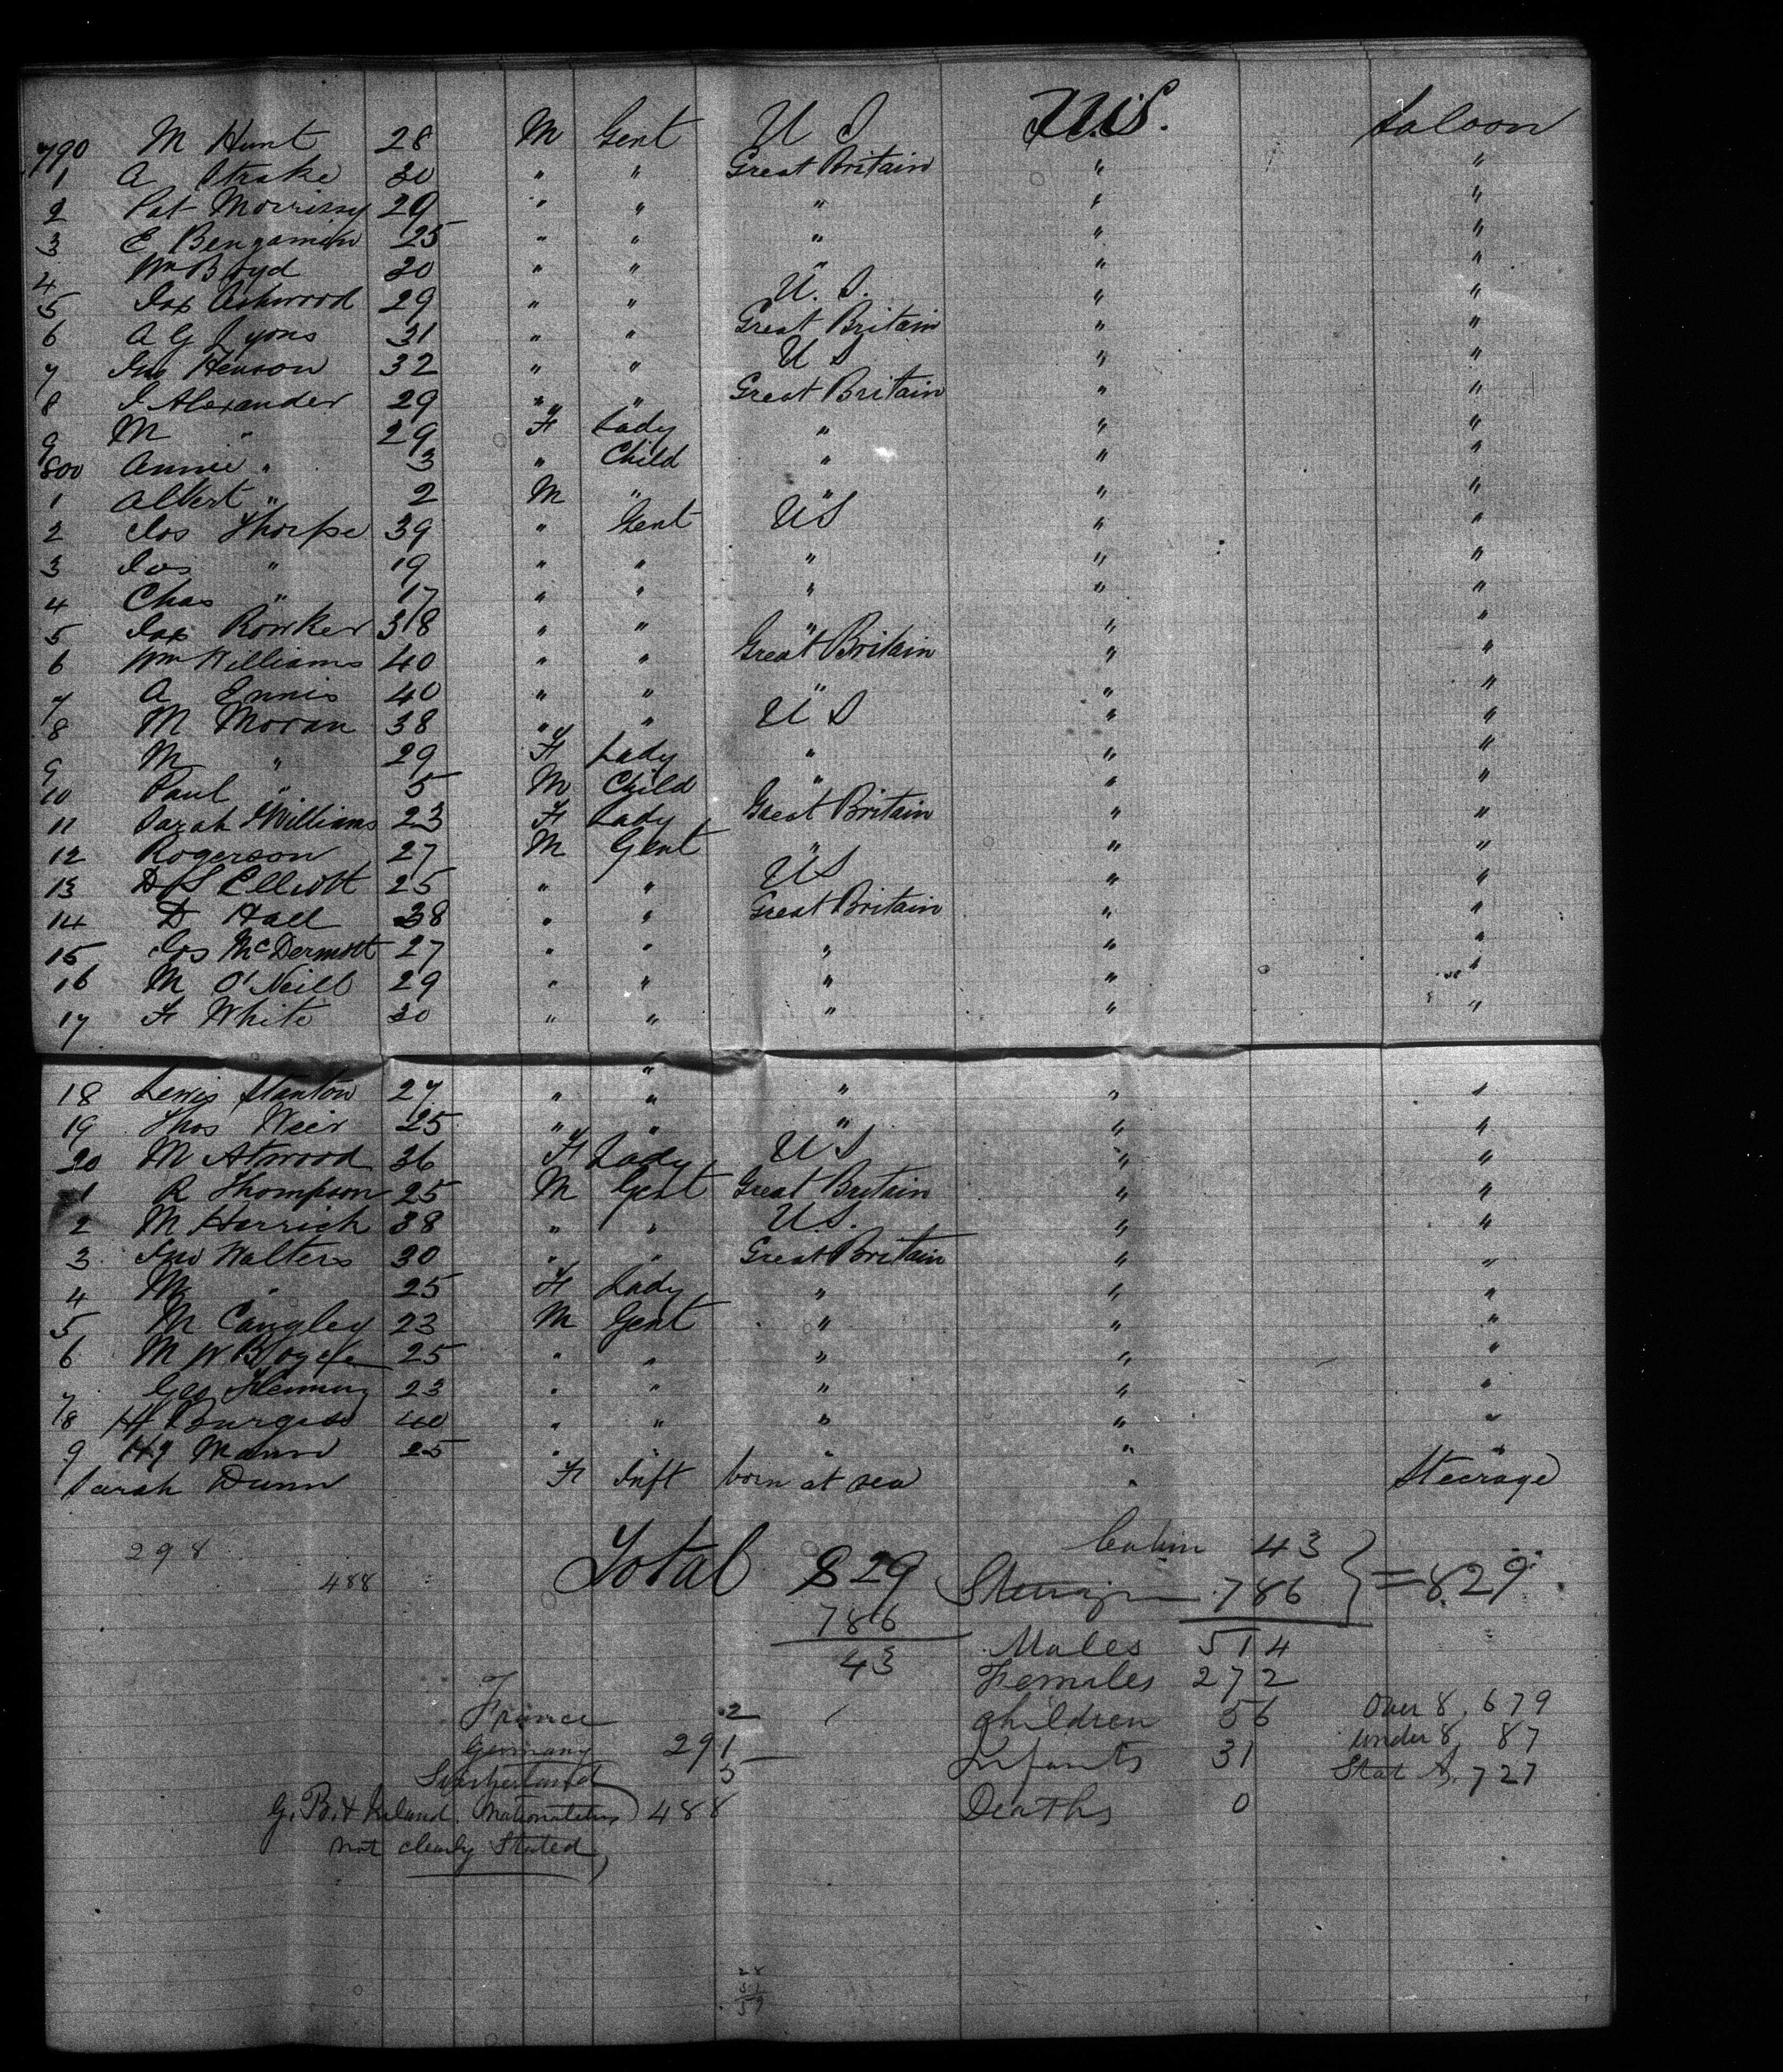 790 M Hunt 28 M Gent U S U.S. Saloon
1 A Strake 30 " " Great Britain " "
2 Pat Morrissy 29 " " " " "
3 E Bengamin 25 " " " " "
4 Wm Boyd 30 " " " " "
5 Jas Ashwood 29 " " U. S. " "
6 A G Lyons 31 " " Great Britain " "
7 Jno Henson 32 " " U S " "
8 J Alexander 29 " " Great Britain " "
9 M " 29 F Lady " " "
800 Annie " 3 " Child " " "
1 Albert " 2 M " " " "
2 Jos Thorpe 39 " Gent US " "
3 Jos " 19 " " " " "
4 Chas " 17 " " " " "
5 Jas Rowker 38 " " " " "
6 Wm Williams 40 " " Great Britain " "
7 A Ennis 40 " " " " "
8 M Moran 38 " " U S " "
9 M " 29 F Lady " " "
10 Paul " 5 M Child " " "
11 Sarah Williams 23 F Lady Great Britain " "
12 Rogerson 27 M Gent " " "
13 D S Elliott 25 " " US " "
14 D Hall 38 " " Great Britain " "
15 Jos McDermott 27 " " " " "
16 M O'Neill 29 " " " " "
17 F White 30 " " " " "
18 Lewis Stanton 27 " " " " "
19 Thos Weir 25 " " " " "
20 M Atwood 36 F Lady U S " "
1 R Thompson 25 M Gent Great Britain " "
2 M Herrick 38 " " U.S. " "
3 Jno Walters 30 " " Great Britain " "
4 M " 25 F Lady " " "
5 M Cangley 23 M Gent " " "
6 M W 25 " " " " "
7 Geo Fleming 23 " " " " "
8 H Burgess 40 " " " " "
9 Hy Mann 25 " " " " "
Sarah Dunn F Inft born at sea " Steerage
298 Total 829 Cabin 43
488 786 Steerage 786 = 829
43 Males 514
Females 272
France 2 Children 56 Over 8, 679
Germany 291 Infants 31 Under 8, 87
Switzerland 5 Stat A. 727
G. B. & Ireland. Nationalities 488 Deaths 0
not clearly Stated
28
31
59